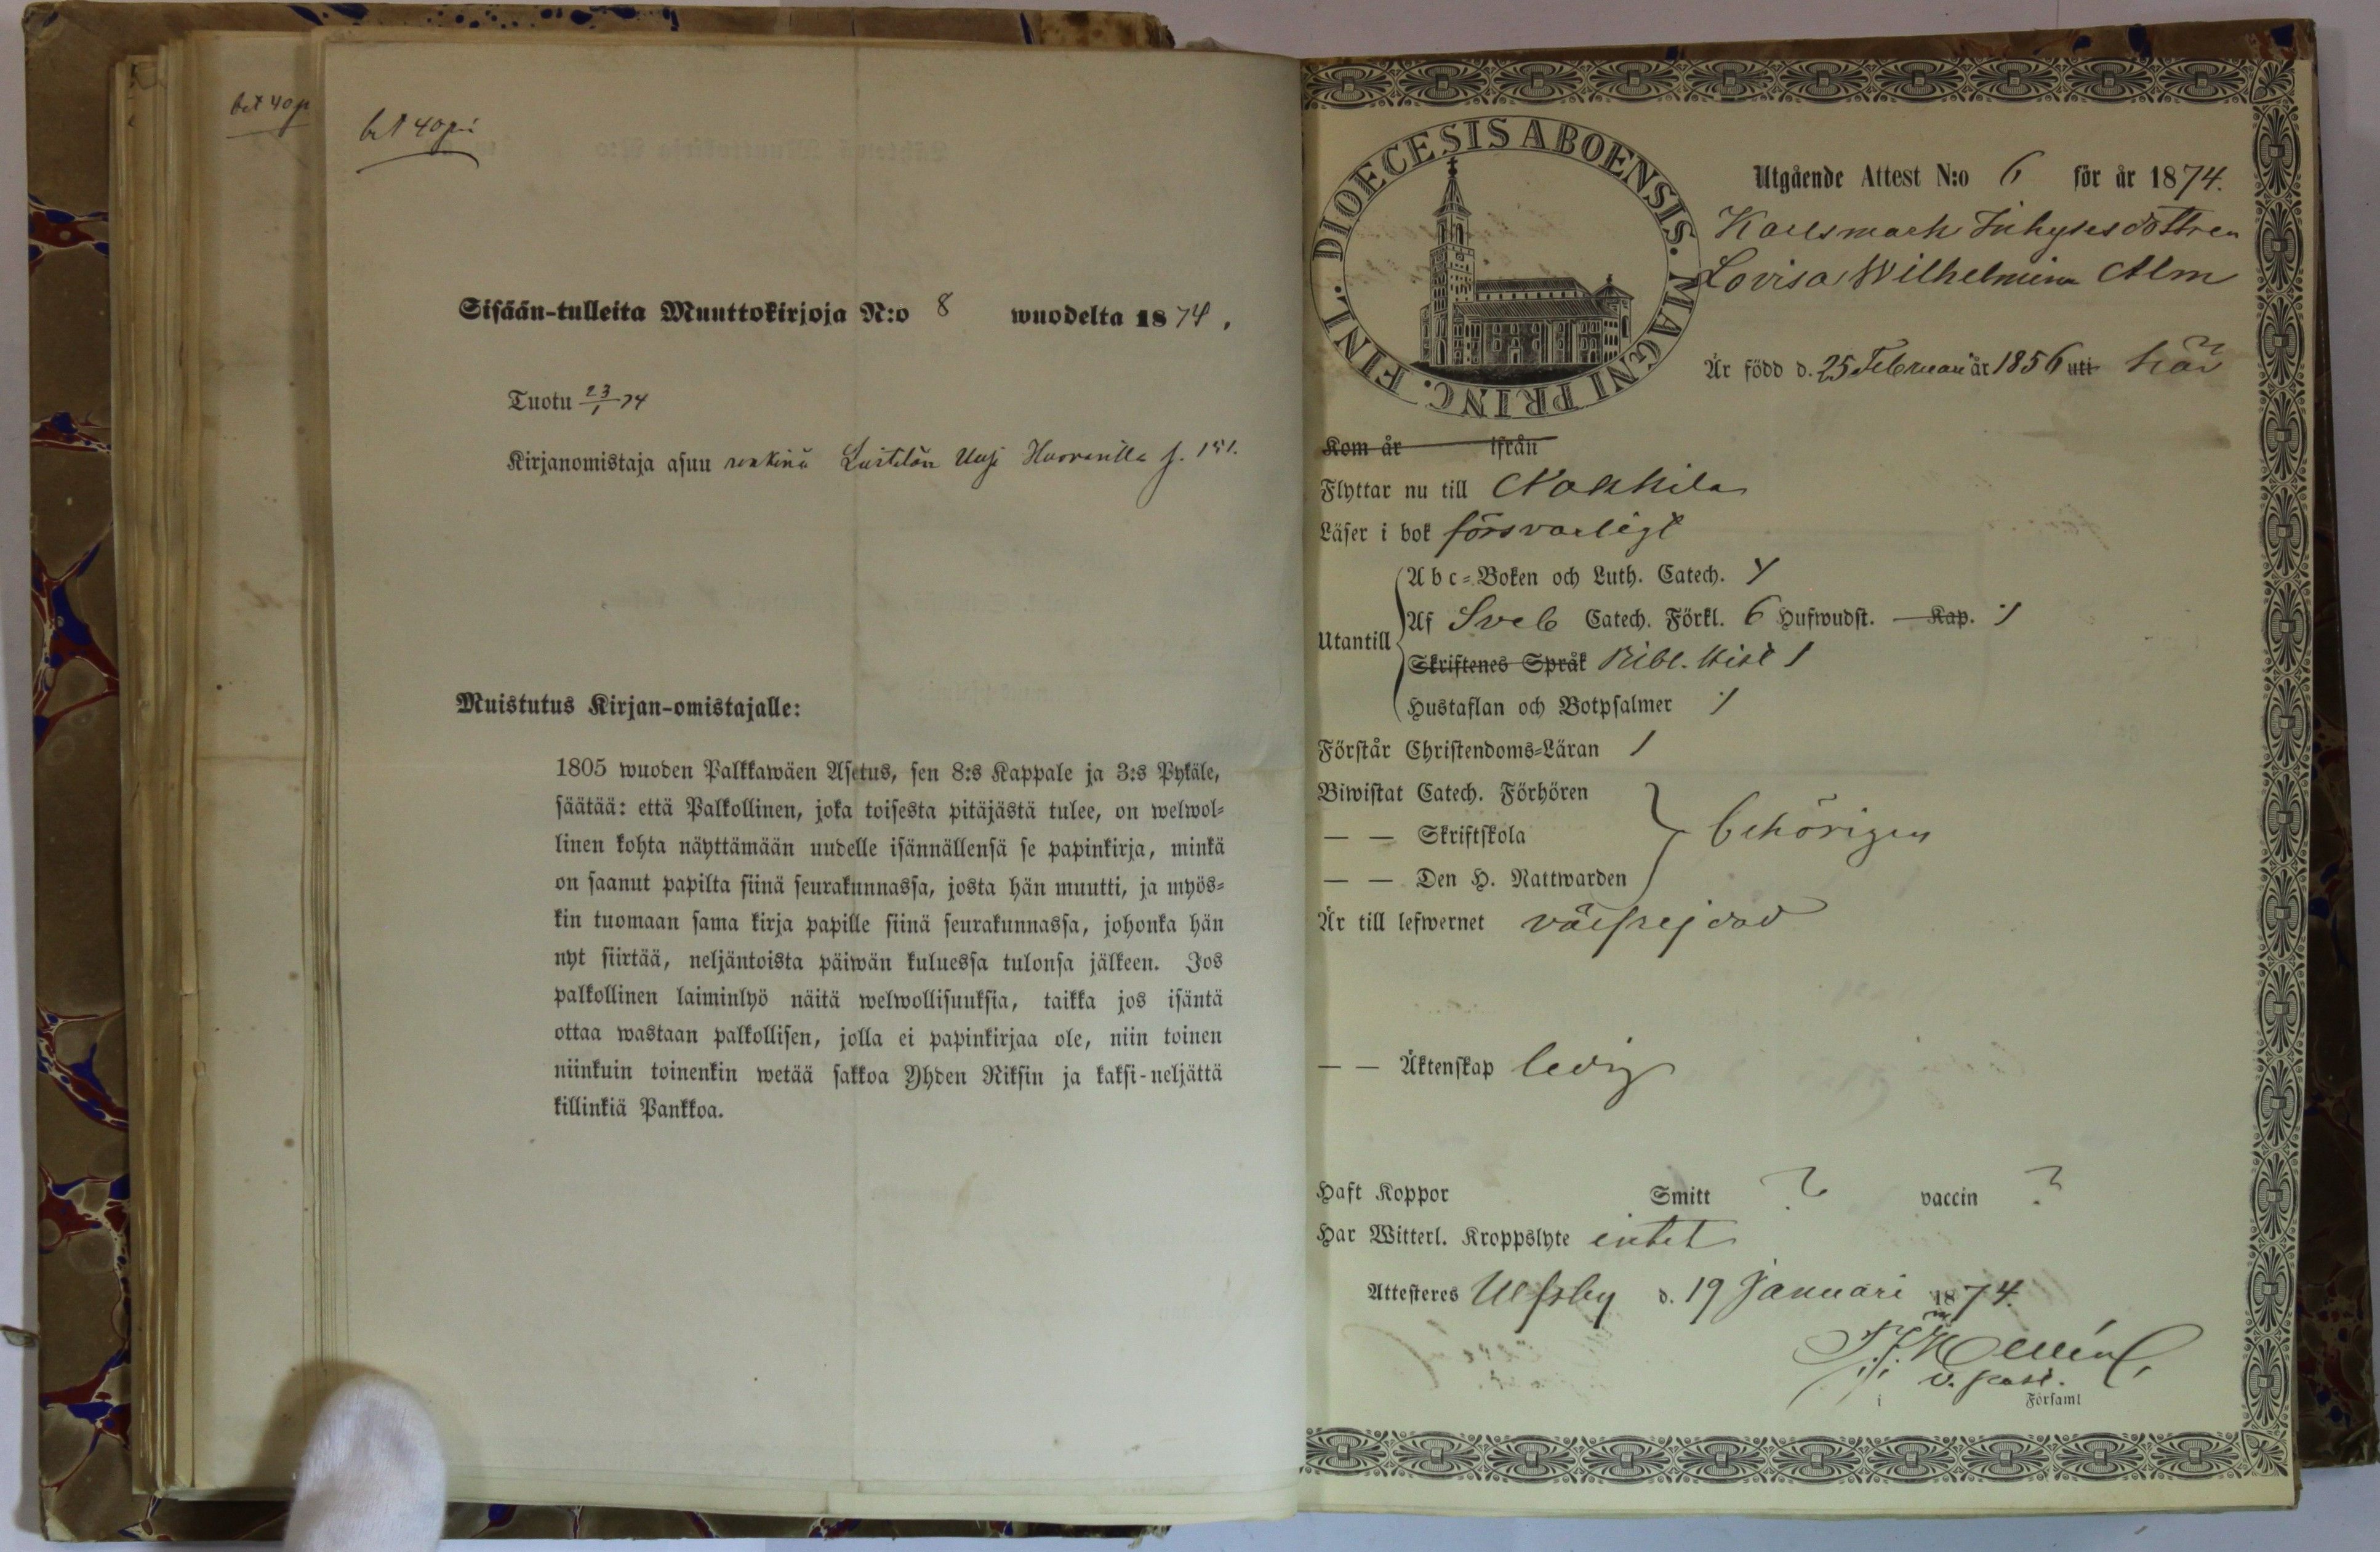 bet 40 p
bet 40 pi
Sisään-tulleita Muuttokirjoja N:o 8 wuodelta 1874.
Tuotu 23/1 74
Kirjanomistaja asuu renkinä Luistilan Uusi f. 151.
Muistutus Kirjan-omistajalle:
1805 wuoden Palkkawäen Asetus, sen 8:s Kappale ja 3:s Pykäle,
säätää: että Palkollinen, joka toisesta pitäjästä tulee, on welwol-
linen kohta näyttämään uudelle isännällensä se papinkirja, minkä
on saanut papilta siinä seurakunnassa, josta hän muutti, ja myös-
kin tuomaan sama kirja papille siinä seurakunnassa, johonka hän
nyt siirtää, neljäntoista päiwän kuluessa tulonsa jälkeen. Jos
palkollinen laiminlyö näitä welwollisuuksia, taikka jos isäntä
ottaa wastaan palkollisen, jolla ei papinkirjaa ole, niin toinen
niinkuin toinenkin wetää sakkoa Yhden Riksin ja kaksi-neljättä
killinkiä Pankkoa.
DIOECESIS ABOENSIS. MAGNI PRINC. FINL.
Utgående Attest N:o 6 för år 1874.
Karlsmark Inhysesdottren
Lovisa Wilhelmina Alm
Är född d. 25 Februari år 1856 uti här
Kom år ifrån
Flyttar nu till Nakkila
Läser i bok försvarligt
Abc-Boken och Luth. Catech.
Utantill
Af Sveb Catech. Förkl. 6 Hufwudst. Kap.
Skriftenes Språk Bibl. Hist
Hustaflan och Botpsalmer
Förstår Christendoms-Läran
Biwistat Catech. Förhören
— — Skriftskola behörigen
— — Den H. Nattwarden
Är till lefwernet välfrejdad
— — Äktenskap ledig
Haft Koppor Smitt ? vaccin ?
Har Witterl. Kroppslyte intet
Attesteres Ulfsby d. 19 Januari 1874.
v. past.
i Församl